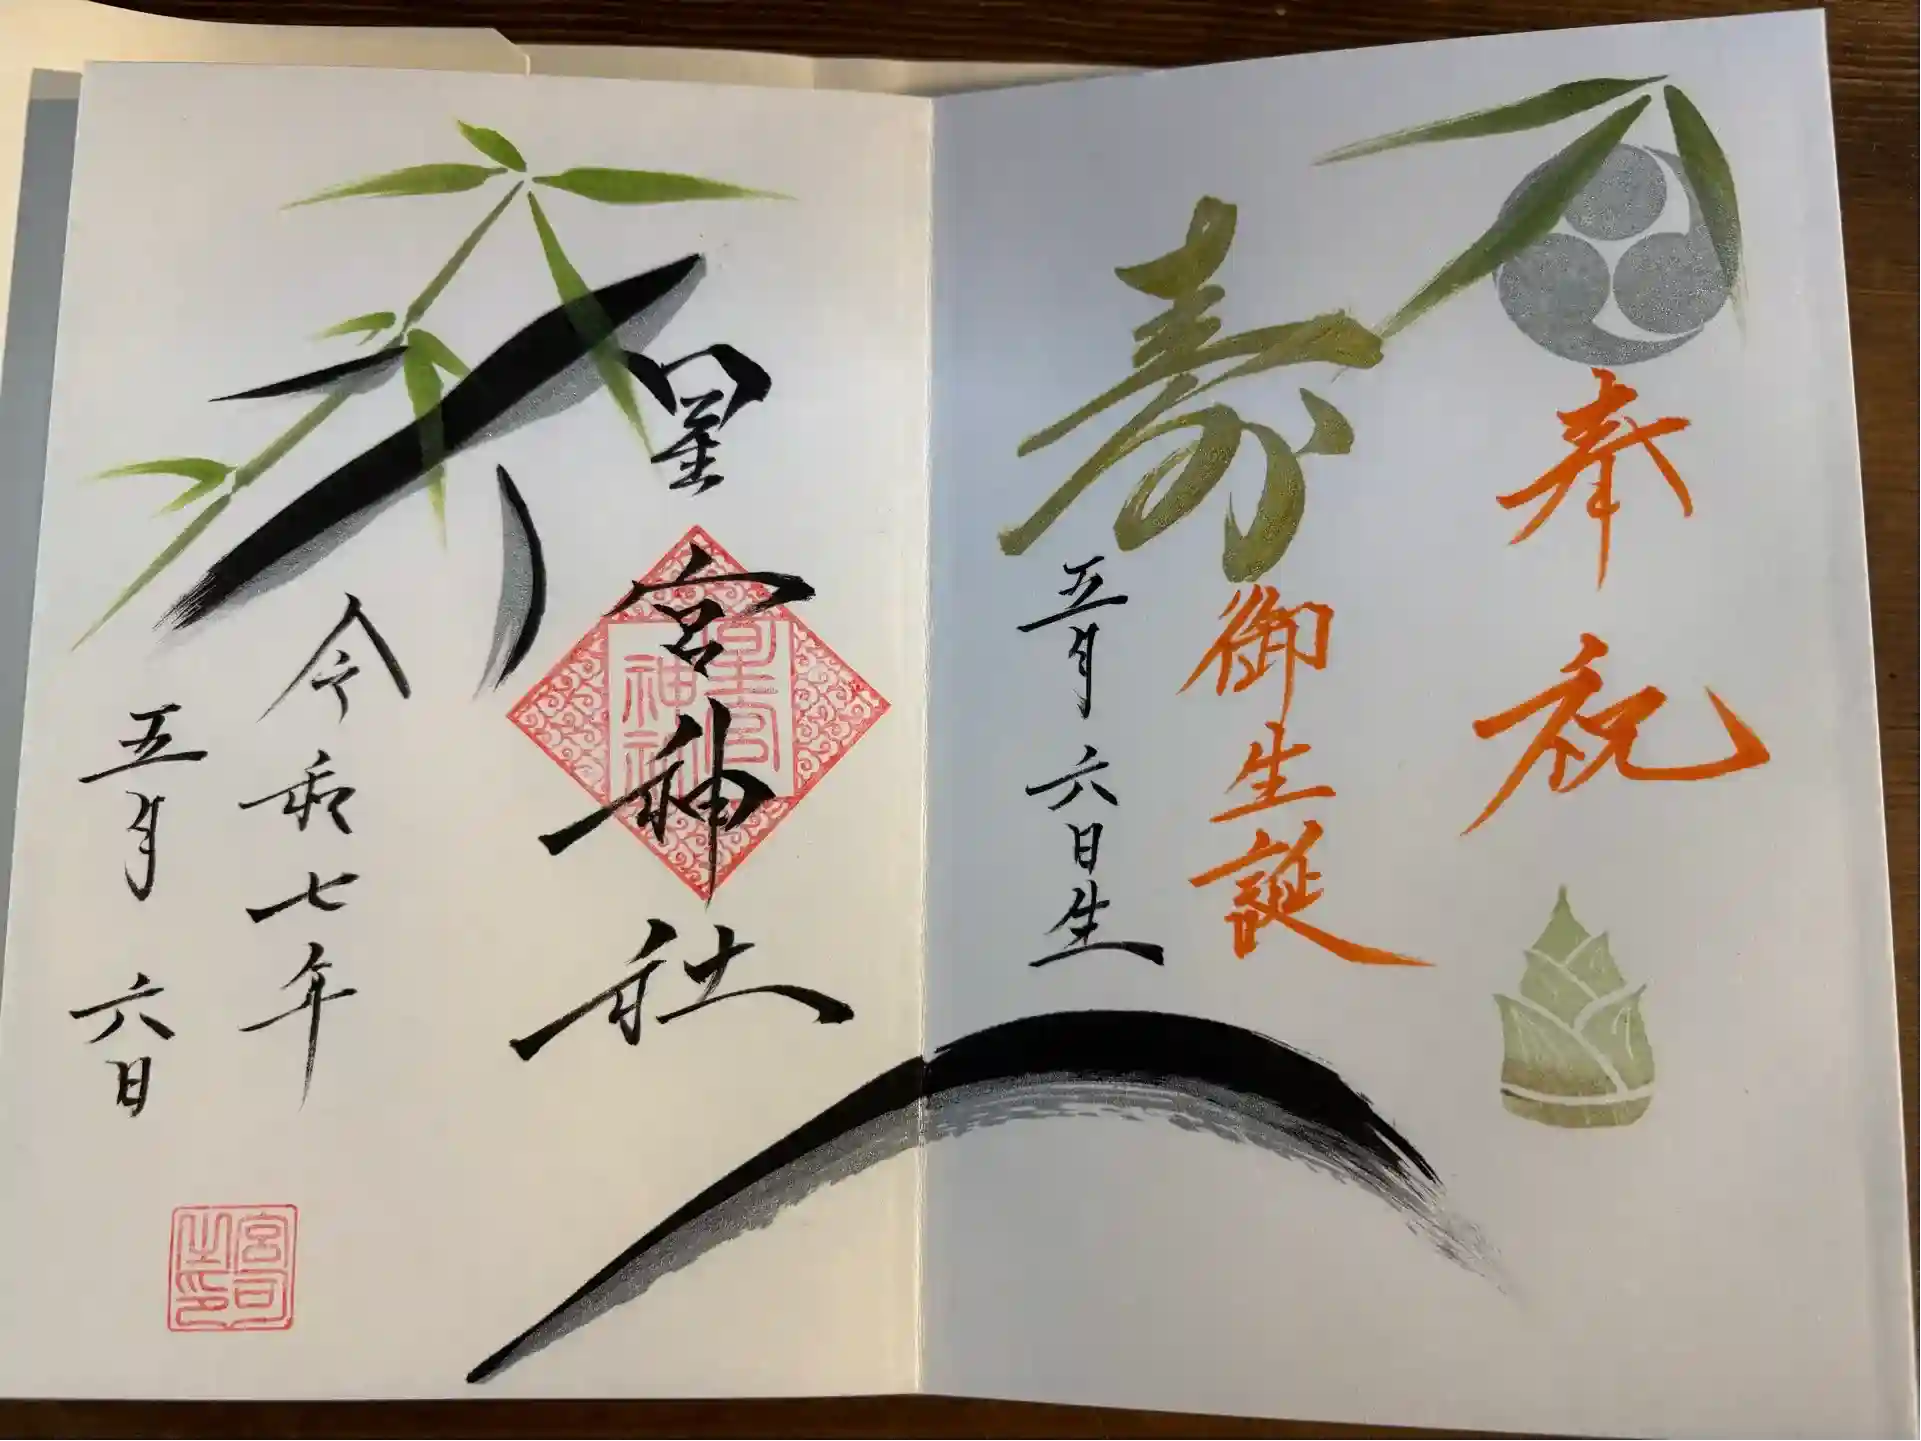 奉祝
寿
御生誕
五月六日生
星宮神社
星宮神社
令和七年
五月六日
宮司之印